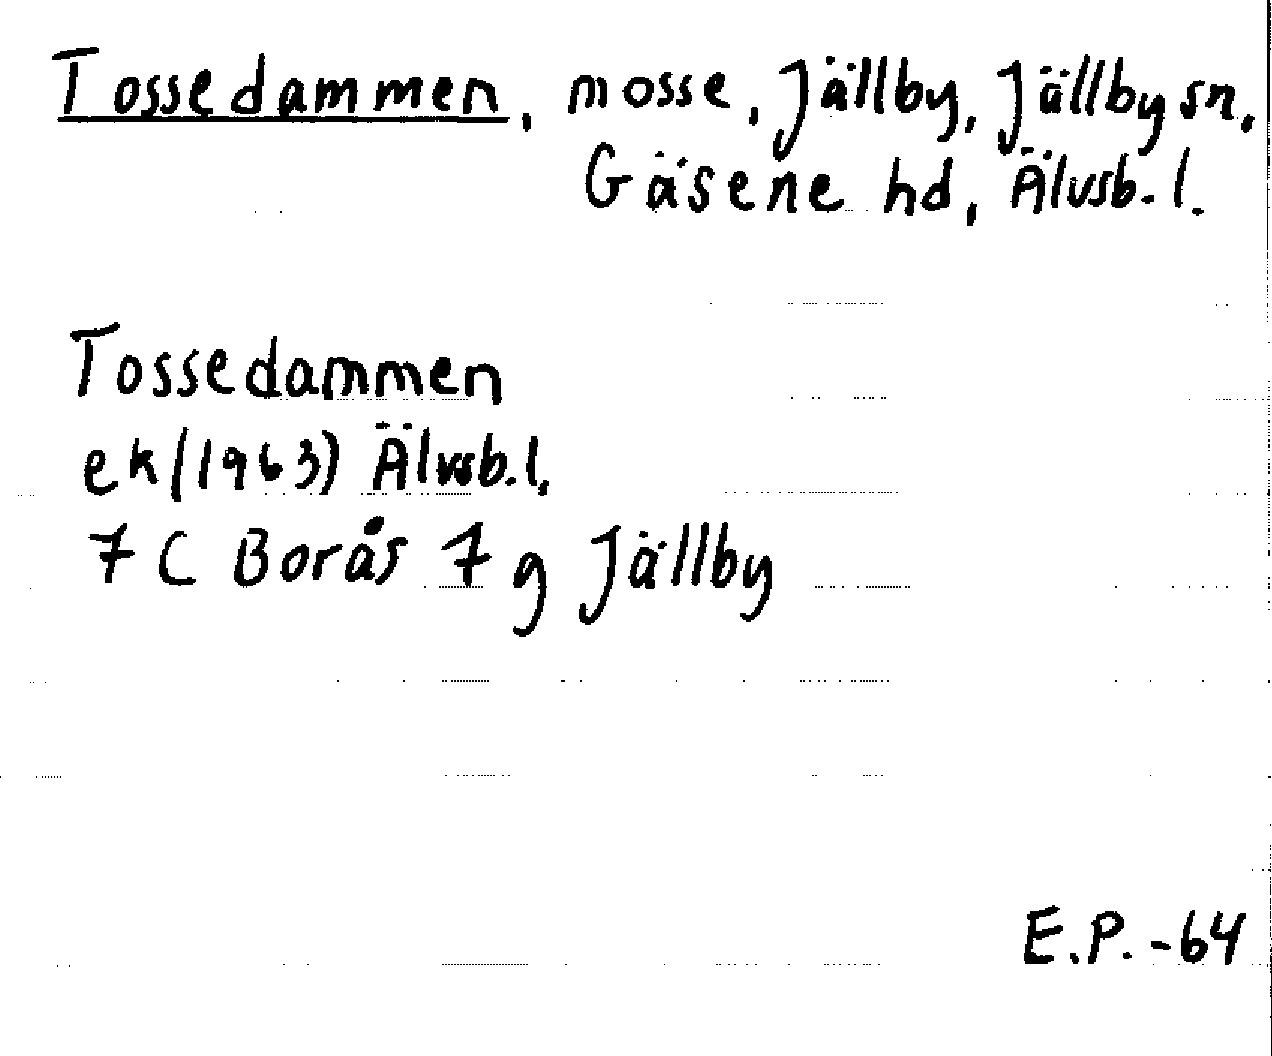 Tossedammen, mosse, Jällby, Jällby sn,
Gäsene hd, Älvsb. l.
Tossedammen
ek (1963) Älvsb. l.
7 C Borås 7 g Jällby
E.P. -64